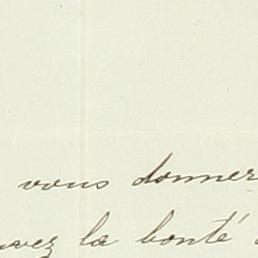 vous donner
la bonté